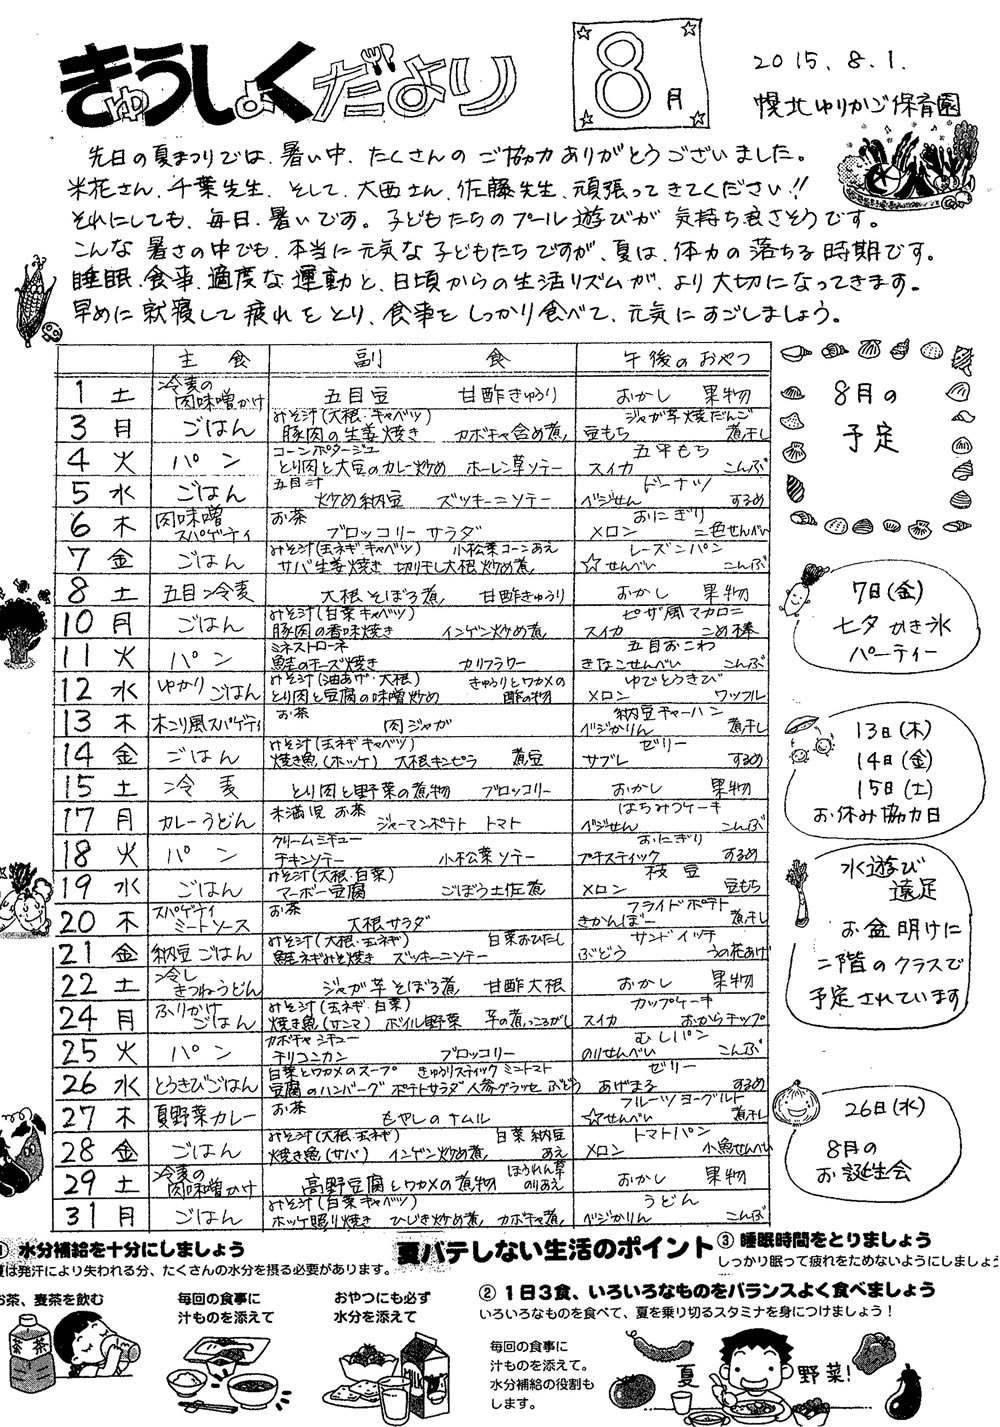 きゅうしょくだより
8月
2015.8.1.
幌北ゆりかご保育園
先日の夏まつりでは、暑い中、たくさんのご協力ありがとうございました。
米花さん、千葉先生、そして、大西さん、佐藤先生、頑張ってきてください!!
それにしても、毎日、暑いです。子どもたちのプール遊びが気持ち良さそうです。
こんな暑さの中でも、本当に元気な子どもたちですが、夏は、体力の落ちる時期です。
睡眠、食事、適度な運動と、日頃からの生活リズムが、より大切になってきます。
早めに就寝して疲れをとり、食事をしっかり食べて、元気にすごしましょう。
主食 副食 午後のおやつ
1 土 冷麦の肉味噌かけ 五目豆 甘酢きゅうり おかし 果物
3 月 ごはん みそ汁(大根・キャベツ) 豚肉の生姜焼き カボチャ含め煮 ジャガ芋焼だんご 豆もち 煮干し
4 火 パン コーンポタージュ とり肉と大豆のカレー炒め ホーレン草ソテー 五平もち スイカ こんぶ
5 水 ごはん 五目汁 炒め納豆 ズッキーニソテー ドーナツ ベジせん するめ
6 木 肉味噌スパゲティ お茶 ブロッコリーサラダ おにぎり メロン 二色せんべい
7 金 ごはん みそ汁(玉ネギ キャベツ) 小松菜コーンあえ サバ生姜焼き 切り干し大根炒め煮 レーズンパン ☆せんべい こんぶ
8 土 五目冷麦 大根そぼろ煮 甘酢きゅうり おかし 果物
10 月 ごはん みそ汁(白菜 キャベツ) 豚肉の香味焼き インゲン炒め煮 ピザ風マカロニ スイカ こめ棒
11 火 パン ミネストローネ 鮭のチーズ焼き カリフラワー 五目おこわ きなこせんべい こんぶ
12 水 ゆかりごはん みそ汁(油あげ・大根) きゅうりとワカメの酢の物 とり肉と豆腐の味噌炒め ゆでとうきび メロン ワッフル
13 木 木こり風スパゲティ お茶 肉ジャガ 納豆チャーハン ベジかりん 煮干し
14 金 ごはん みそ汁(玉ネギ キャベツ) 焼き魚(ホッケ) 大根キンピラ 煮豆 ゼリー サブレ するめ
15 土 冷麦 とり肉と野菜の煮物 ブロッコリー おかし 果物
17 月 カレーうどん 未満児 お茶 ジャーマンポテト トマト はちみつケーキ ベジせん こんぶ
18 火 パン クリームシチュー チキンソテー 小松菜ソテー おにぎり プチスティック するめ
19 水 ごはん みそ汁(大根・白菜) マーボー豆腐 ごぼう土佐煮 枝豆 メロン 豆もち
20 木 スパゲティミートソース お茶 大根サラダ フライドポテト きかんぼー 煮干し
21 金 納豆ごはん みそ汁(大根・玉ネギ) 白菜おひたし 鮭ネギみそ焼き ズッキーニソテー サンドイッチ ぶどう うの花あげ
22 土 冷しきつねうどん ジャガ芋そぼろ煮 甘酢大根 おかし 果物
24 月 ふりかけごはん みそ汁(玉ネギ・白菜) 焼き魚(サンマ) ボイル野菜 芋の煮っころがし カップケーキ スイカ おからチップ
25 火 パン カボチャシチュー チリコンカン ブロッコリー むしパン のりせんべい こんぶ
26 水 とうきびごはん 白菜とワカメのスープ きゅうりスティック ミニトマト 豆腐のハンバーグ ポテトサラダ 人参グラッセ ぶどう ゼリー あげまる するめ
27 木 夏野菜カレー お茶 もやしのナムル フルーツヨーグルト ☆せんべい 煮干し
28 金 ごはん みそ汁(大根・玉ネギ) 白菜納豆あえ 焼き魚(サバ) インゲン炒め煮 トマトパン メロン 小魚せんべい
29 土 冷麦の肉味噌かけ 高野豆腐とワカメの煮物 ほうれん草のりあえ おかし 果物
31 月 ごはん みそ汁(白菜 キャベツ) ホッケ照り焼き ひじき炒め煮 カボチャ煮 うどん ベジかりん こんぶ
8月の
予定
7日(金)
七夕かき氷
パーティー
13日(木)
14日(金)
15日(土)
お休み協力日
水遊び
遠足
お盆明けに
二階のクラスで
予定されています
26日(水)
8月の
お誕生会
夏バテしない生活のポイント
① 水分補給を十分にしましょう
夏は発汗により失われる分、たくさんの水分を摂る必要があります。
お茶、麦茶を飲む
茶 茶
毎回の食事に
汁ものを添えて
おやつにも必ず
水分を添えて
② 1日3食、いろいろなものをバランスよく食べましょう
いろいろなものを食べて、夏を乗り切るスタミナを身につけましょう！
毎回の食事に
汁ものを添えて。
水分補給の役割も
します。
夏 野菜！
③ 睡眠時間をとりましょう
しっかり眠って疲れをためないようにしましょう